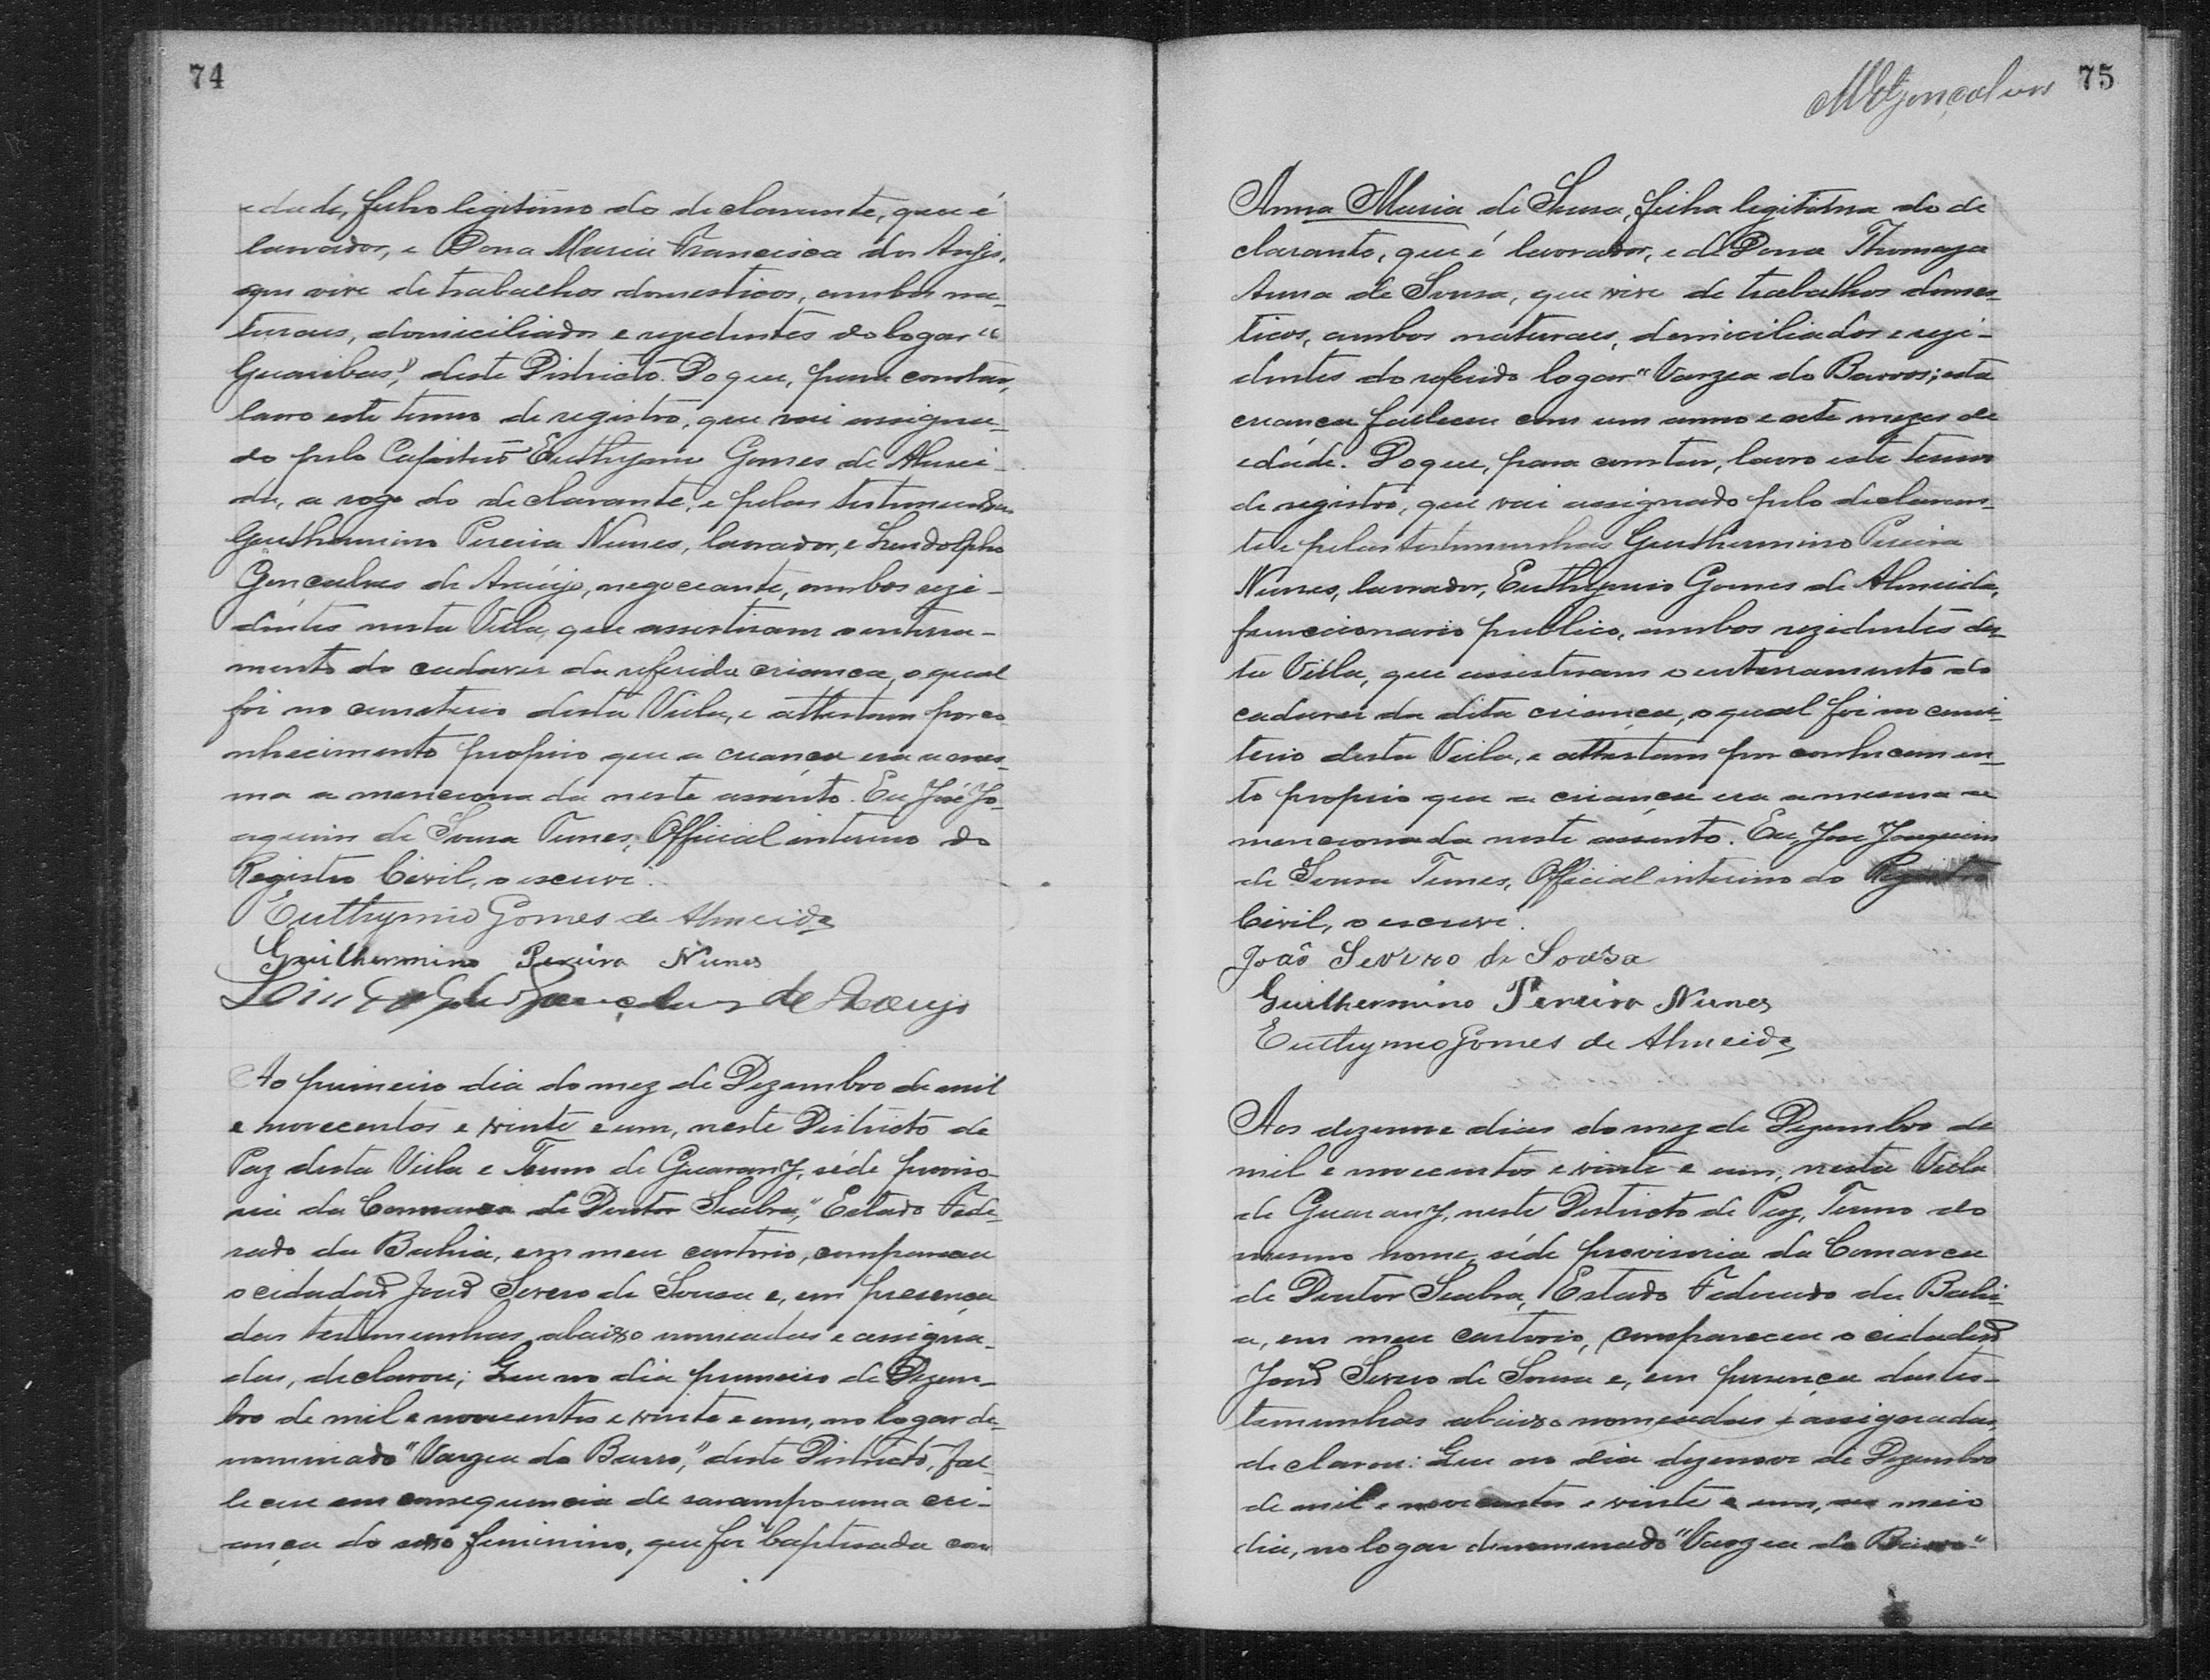 74
edade, filho legitimo do declarante, que é
lavrador, e Dona Maria Francisca dos Anjos,
que vive de trabalhos domesticos, ambos na-
turaes, domiciliados e rezidentes do logar "
Guaribas", deste Districto. Do que, para constar,
lavro este termo de registro, que vai assigna-
do pelo Capitão Euthymio Gomes de Almei-
da, a rogo do declarante, e pelas testemunhas
Guilhermino Pereira Nunes, lavrador, e Lindolpho
Gonçalves de Araújo, negociante, ambos rezi-
dentes nesta Villa, que assistiram o enterra-
mento do cadaver da referida criança, o qual
foi no cemiterio desta Villa, e attestam por co-
nhecimento proprio que a criança era a mes-
ma a mencionada neste assento. Eu José Jo-
aquim de Sousa Tunes, Official interino do
Registro Civil, o escrevi.
Euthymio Gomes de Almeida
Guilhermino Pereira Nunes
Lindolpho Gonçalves de Araujo
Ao primeiro dia do mez de Dezembro de mil
e novecentos e vinte e um, neste Districto de
Paz desta Villa e Termo de Guarany, séde proviso-
ria da Comarca de Doutor Seabra," Estado Fede-
rado da Bahia, em meu cartorio, compareceu
o cidadão João Severo de Sousa e, em presença
das testemunhas abaixo nomeadas e assigna-
das, declarou; Que no dia primeiro de Dezem-
bro de mil e novecentos e vinte e um, no logar de-
nominado "Varzea do Barro," deste Districto, fal-
leceu em consequencia de sarampo uma cri-
ança do sexo feminino, que foi baptisada com
MEGonçalves 75
Anna Maria de Sousa, filha legitima do de
clarante, que é lavrador, e de Dona Thomazia
Anna de Sousa, que vive de trabalhos domes-
ticos, ambos naturaes, domiciliados e rezi-
dentes do referido logar "Varzea do Barros; esta
criança falleceu com um anno e sete mezes de
edade. Do que, para constar, lavro este termo
de registro, que vai assignado pelo declaran-
te e pelas testemunhas Guilhermino Pereira
Nunes, lavrador, Euthymio Gomes de Almeida,
funccionario publico, ambos rezidentes des-
ta Villa, que assistiram o enterramento do
cadaver da dita criança, o qual foi no cemi-
terio desta Villa, e attestam por conhecimen-
to proprio que a criança era a mesma a
mencionada neste assento. Eu, José Joaquim
de Sousa Tunes, Official interino do Registro
Civil, o escrevi.
João Severo de Sousa
Guilhermino Pereira Nunes
Euthymio Gomes de Almeida
Aos dezenove dias do mez de Dezembro de
mil e novecentos e vinte e um, nesta Villa
de Guarany, neste Districto de Paz, Termo do
mesmo nome, séde provisoria da Comarca
de Doutor Seabra, Estado Federado da Bahi-
a, em meu cartorio, compareceu o cidadão
João Severo de Sousa e, em presença das tes-
temunhas abaixo nomeadas e assignadas,
declarou: Que no dia dezenove de Dezembro
de mil e novecentos e vinte e um, ao meio
dia, no logar denominado "Varzea do Barro"